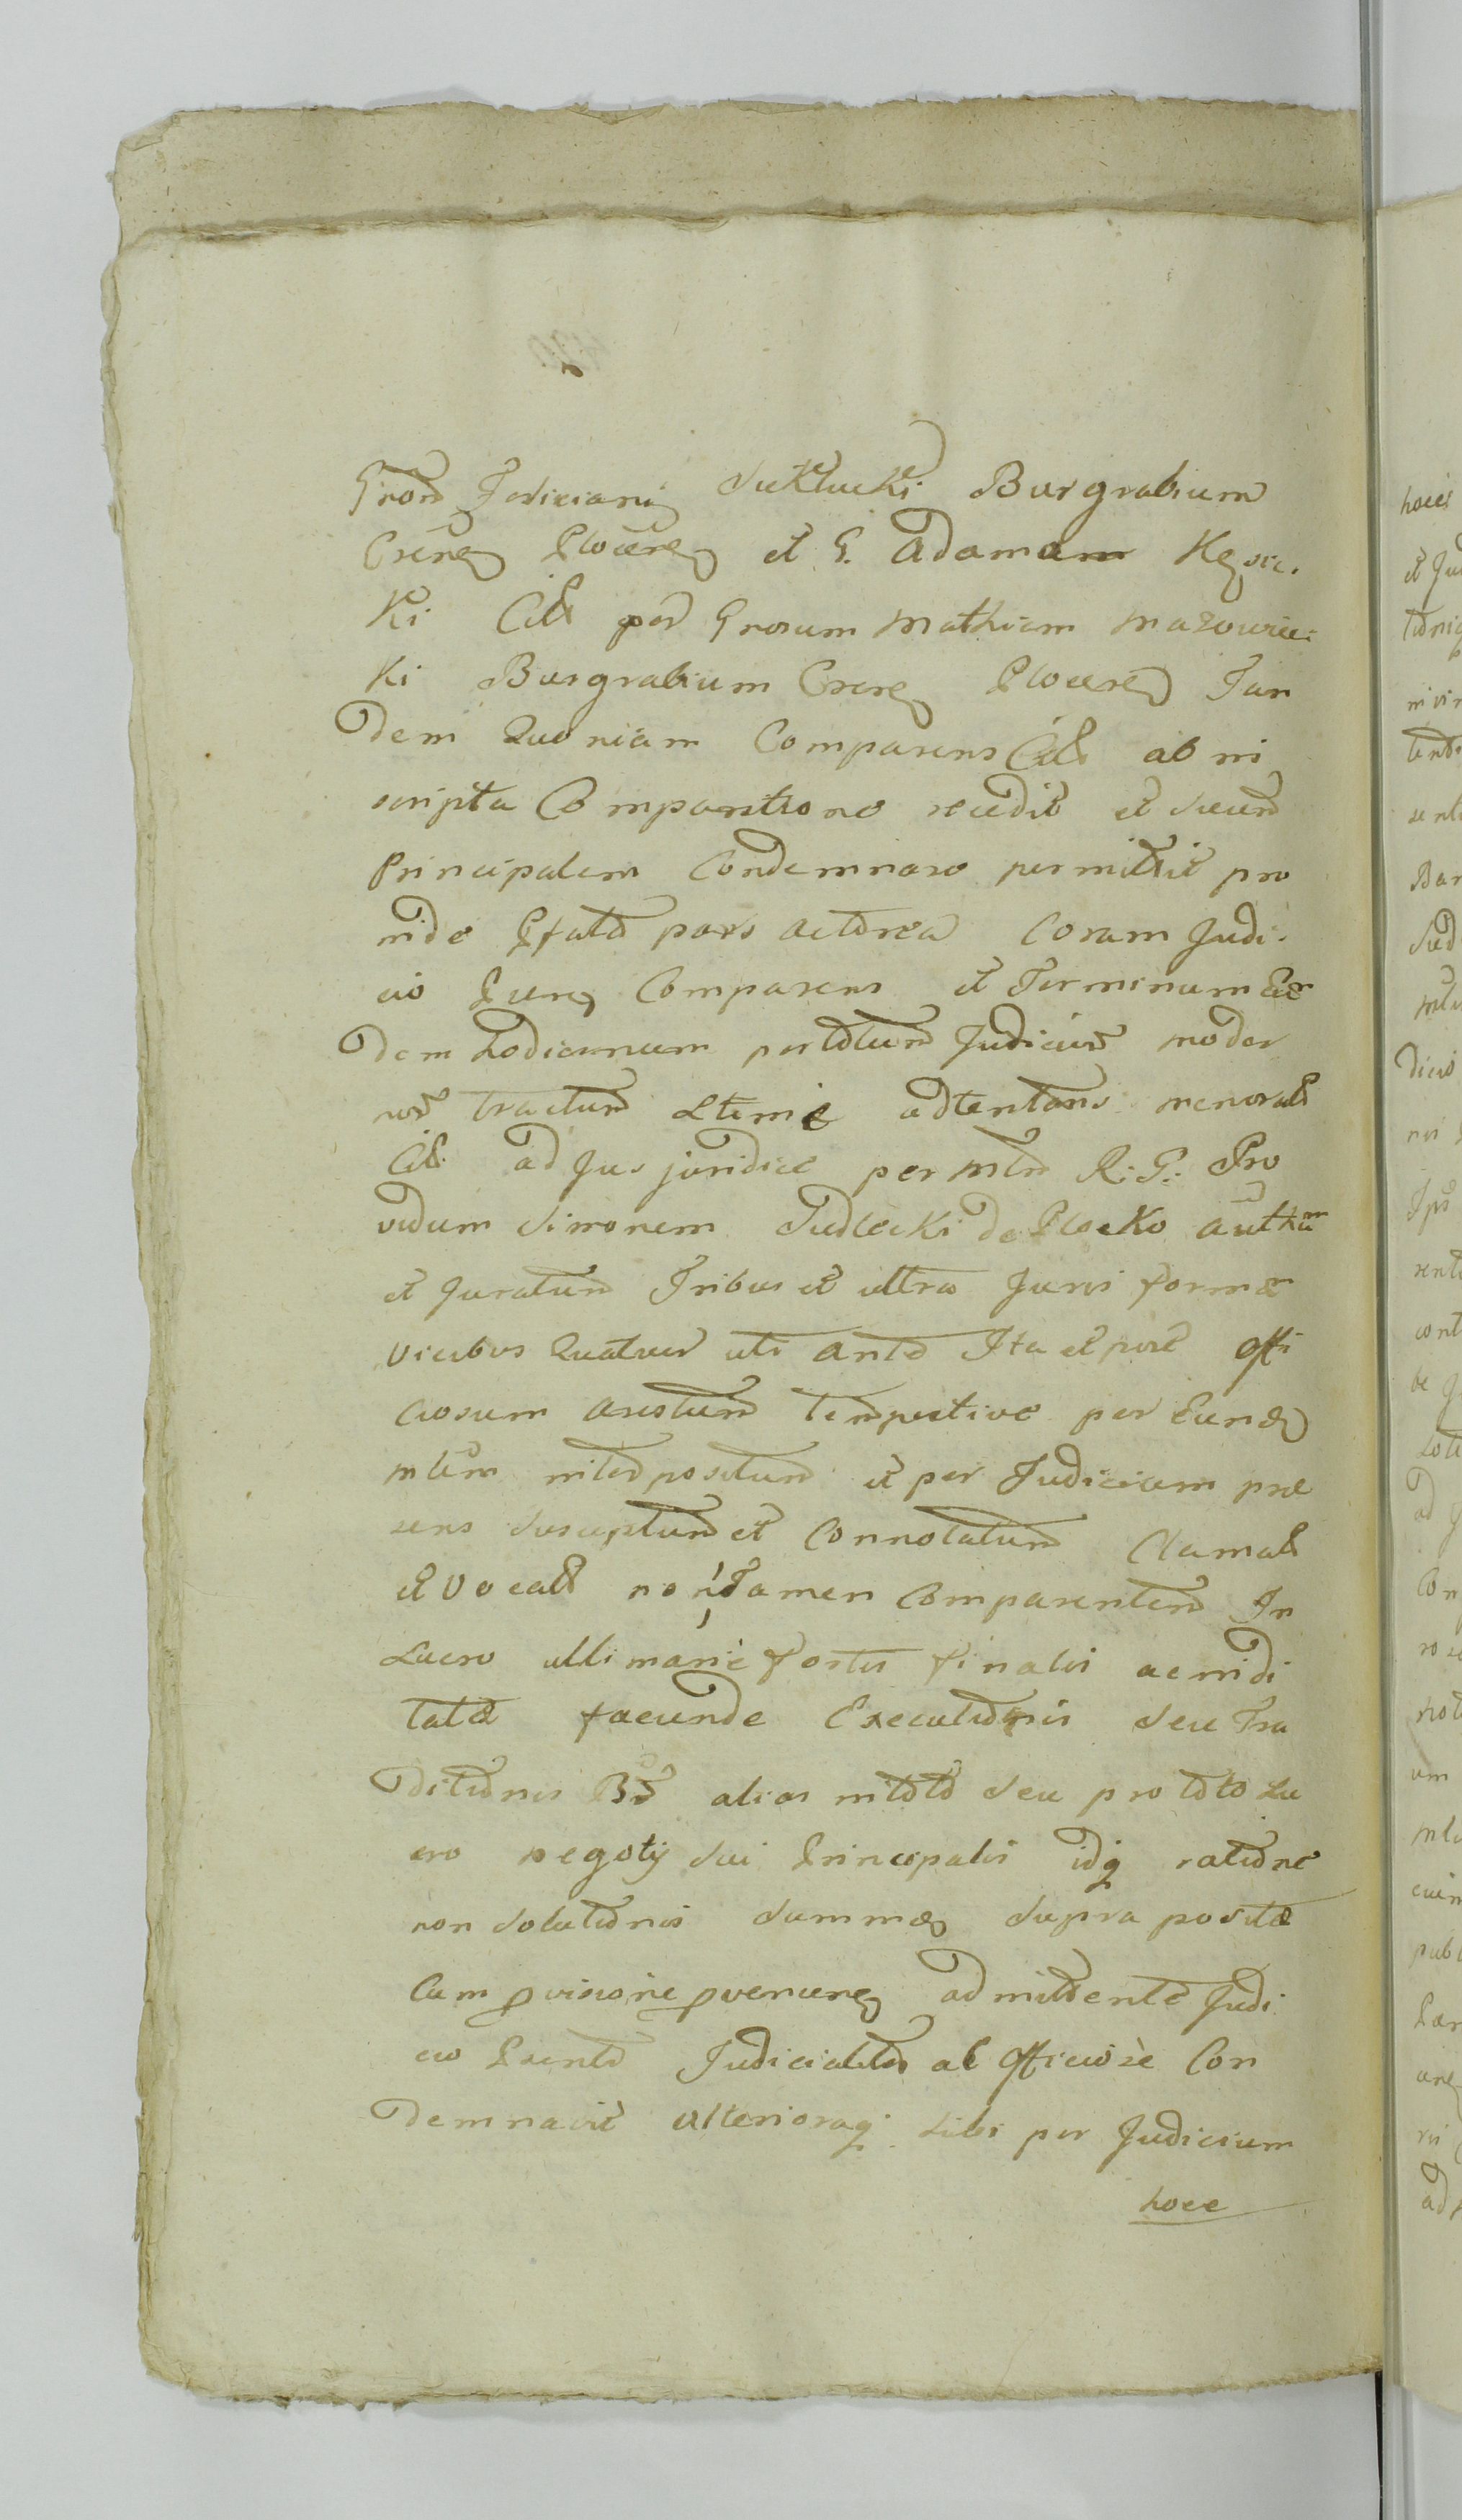 Gnom Feliciani Suktucki Burgrabium
Crens Plocens et G. Adamam Kęsic.
Ki Cit per Grosum Mathiam Mazowiec:
Ki Burgrabium Crens Plocens Tan
dem Quoniam Comparens Cit ab in
scripta Comparitione recedit et suum
Principalem Condemnare permittit pro
inde Pfata pars actorea Coram Judi-
cio Puns Comparens et Terminum Eun
dem hodiernum per totum Judicium moder
num tractum Ltimè adtentans memorat
Cit. ad Jus juridice per Mtm R: G: Pro
vidum Simonem Sudlecki de Plocko authum
et Juratum Tribus et ultra Juris forma
vicibus Quatuor uti ante Ita et pnre offi
ciosum arestum tempestive per Eund
Mtum interpositum et per Judicium prae
sens susceptum et Connotatum Clamat
et Vocat non tamen Comparentem In
Lucro ultimarie sortis finalis ac indi
tate faciende Executionis seu Tra
ditionis B alias in toto seu pro toto Lu
cro negotÿ sui Principalis idq ratione
non Solutionis summæ supra posita
Cum pvisione pvenien admittente Judi
cio Psente Judicialiter ac Officiosè Con
demnavit Ulterioraq sibi per Judicium
hocce